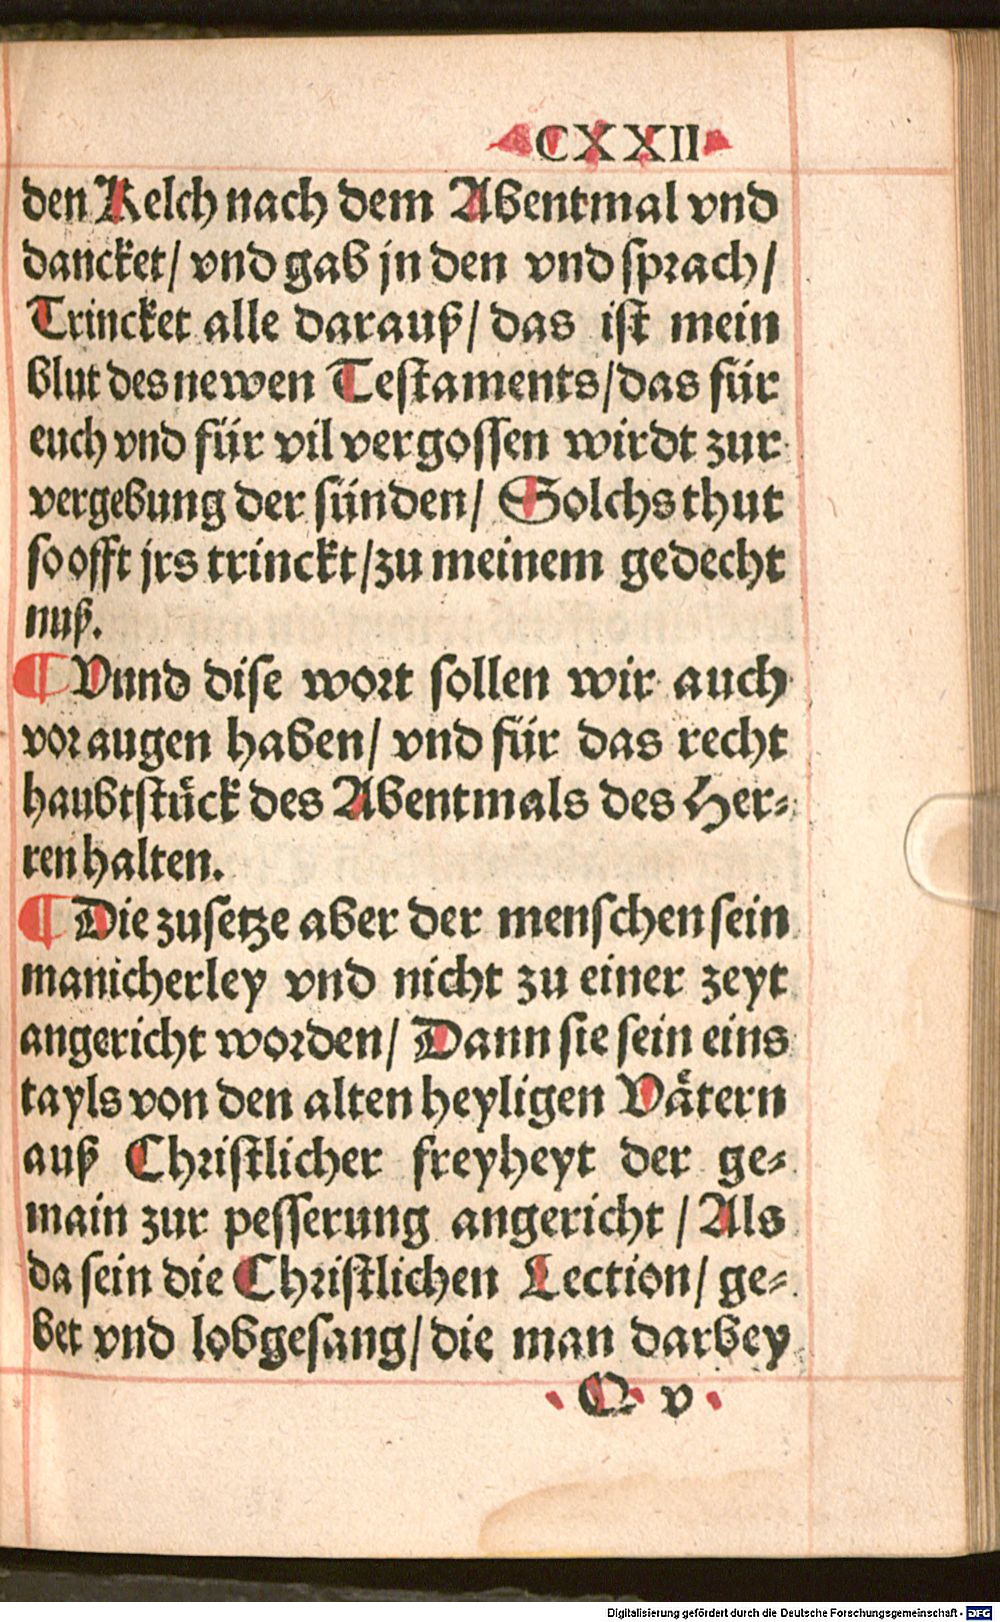 CXXII
den Kelch nach dem Abentmal vnd
dancket/ vnd gab jn den vnd sprach/
Trincket alle darauß/ das ist mein
blut des newen Testaments/das für
euch vnd für vil vergossen wirdt zur
vergebung der sünden/ Solchs thut
so offt jrs trinckt/zu meinem gedecht
nuß.
¶ Vnnd dise wort sollen wir auch
vor augen haben/ vnd für das recht
haubtstück des Abentmals des Her⸗
ren halten.
¶ Die zusetze aber der menschen sein
manicherley vnd nicht zu einer zeyt
angericht worden/ Dann sie sein eins
tayls von den alten heyligen Vätern
auß Christlicher freyheyt der ge⸗
main zur pesserung angericht / Als
da sein die Christlichen Lection/ ge⸗
bet vnd lobgesang/ die man darbey
Q v
Digitalisierung gefördert durch die Deutsche Forschungsgemeinschaft - DFG